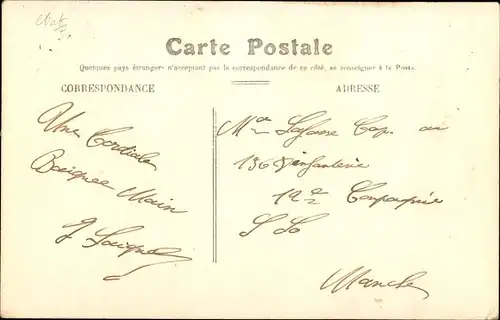 Carte Postale
Quelques pays étrangers n'acceptant pas la correspondance de ce côté, se renseigner à la Poste.
CORRESPONDANCE
Une Cordiale
Main
ADRESSE
Cap. au
136 d'infanterie
12e Compagnie
St Lo
Manche